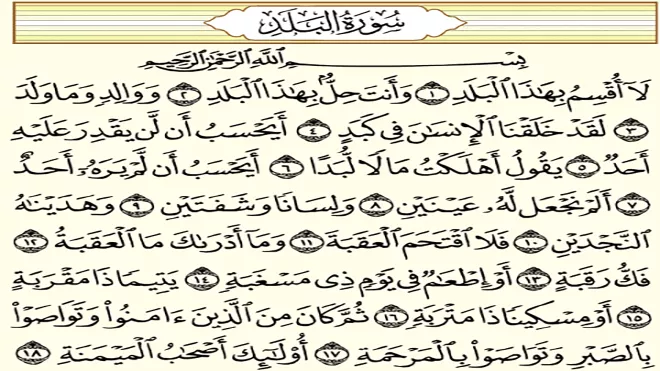 سُورَةُ الْبَلَدِ
بِسْمِ اللَّهِ الرَّحْمَٰنِ الرَّحِيمِ
لَآ أُقْسِمُ بِهَٰذَا الْبَلَدِ ١ وَأَنتَ حِلٌّۢ بِهَٰذَا الْبَلَدِ ٢ وَوَالِدٍ وَمَا وَلَدَ
٣ لَقَدْ خَلَقْنَا الْإِنسَٰنَ فِي كَبَدٍ ٤ أَيَحْسَبُ أَن لَّن يَقْدِرَ عَلَيْهِ
أَحَدٌ ٥ يَقُولُ أَهْلَكْتُ مَالًا لُّبَدًا ٦ أَيَحْسَبُ أَن لَّمْ يَرَهُۥٓ أَحَدٌ
٧ أَلَمْ نَجْعَل لَّهُۥ عَيْنَيْنِ ٨ وَلِسَانًا وَشَفَتَيْنِ ٩ وَهَدَيْنَٰهُ
النَّجْدَيْنِ ١٠ فَلَا اقْتَحَمَ الْعَقَبَةَ ١١ وَمَآ أَدْرَىٰكَ مَا الْعَقَبَةُ ١٢
فَكُّ رَقَبَةٍ ١٣ أَوْ إِطْعَٰمٌ فِي يَوْمٍ ذِي مَسْغَبَةٍ ١٤ يَتِيمًا ذَا مَقْرَبَةٍ
١٥ أَوْ مِسْكِينًا ذَا مَتْرَبَةٍ ١٦ ثُمَّ كَانَ مِنَ الَّذِينَ ءَامَنُوا۟ وَتَوَاصَوْا۟
بِالصَّبْرِ وَتَوَاصَوْا۟ بِالْمَرْحَمَةِ ١٧ أُو۟لَٰٓئِكَ أَصْحَٰبُ الْمَيْمَنَةِ ١٨